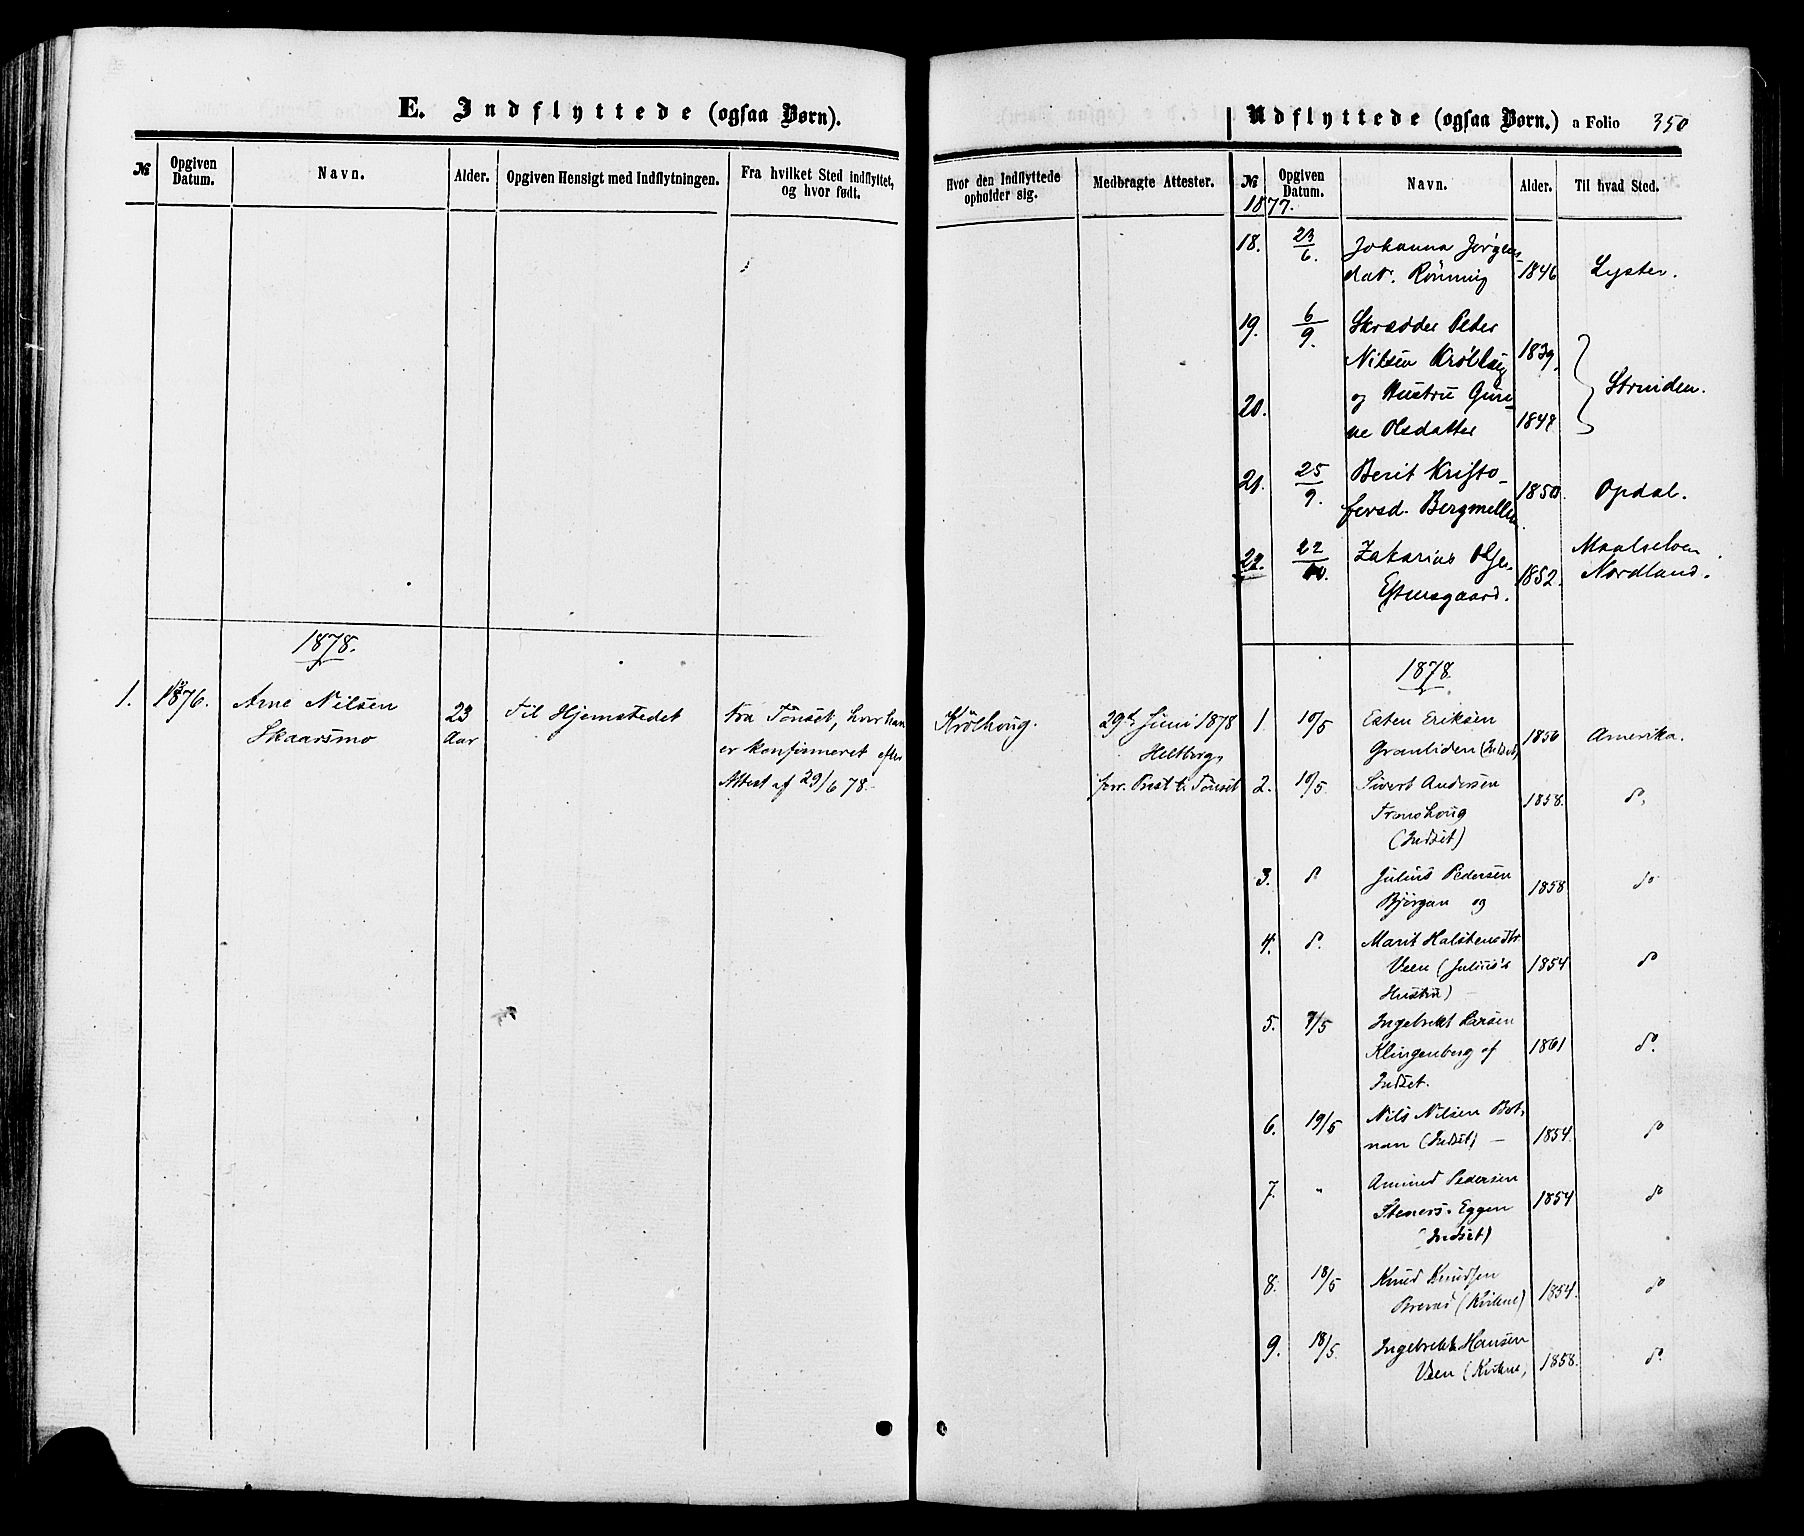 E. Indflyttede (ogsaa Børn).
№
Opgiven Datum.
Navn.
Alder.
Opgiven Hensigt med Indflytningen.
Fra hvilket Sted indflyttet, og hvor født.
1878.
1. 1876. Arne Nilsen 23 Til Hjemstedet fra Tönset, hvor han
Skaarsmo Aar er konfirmeret efter
Attest af 29/6 78.
Udflyttede (ogsaa Børn.) a Folio 350
Hvor den Indflyttede opholder sig.
Medbragte Attester.
№
Opgiven Datum.
Navn.
Alder.
Til hvad Sted.
Krölhoug. 29de Juni 1878
Heltberg,
forr. Prest t. Tönset
1877.
18. 23/6. Johanna Jørgens-
dat. Rönning 1846 Lyster.
19. 6/9. Skrædder Peder
Nilsen Krölhoug 1839.
20. og Hustru Guru-
ne Olsdatter 1848 Strinden.
21. 25/9. Berit Kristo-
fersd. Bergmellen 1850. Opdal.
22. 22/10. Zakarias
Estensgaard. 1852. Maalselven
Nordland.
1878
1 10/5 Esten Eriksen
Granliden (Indset) 1856 Amerika.
2. 10/5 Sivert Andersen
Fronshoug 1858. do,
(Indset)
3. do Julius Pedersen
Bjørgan og 1858 do
4. do. Marit Halstensdtr
Veen (Julius's 1854 do
Hustru) —
5. 9/5 Ingebrekt Larsen
Klingenberg af 1861 do.
Indset.
6. 19/5 Nils Nilsen Bot-
nan (Indset) — 1854. do
7. " Amund Pedersen
Steners-Eggen 1854 do
(Indset)
8. 18/5 Knud Knudsen
(Kvikne) 1854. do
9. 18/5. Ingebrekt Hansen
Veen (Kvikne) 1858. do.